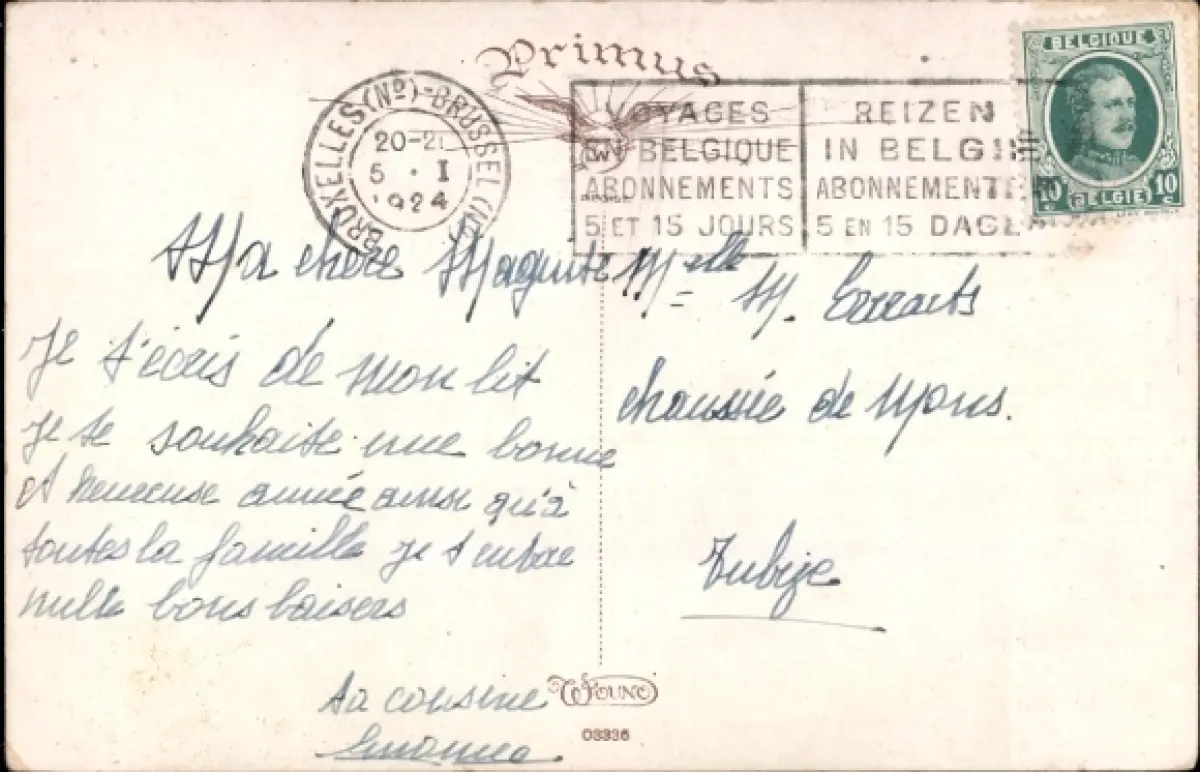 Primus
BELGIQUE
BRUXELLES (Nº)-BRUSSEL (Nº)
20-21
5 · I
1924
VOYAGES
EN BELGIQUE
ABONNEMENTS
5 ET 15 JOURS
REIZEN
IN BELGI
ABONNEMENT
5 EN 15 DAGE
10 BELGIE 10
Ma chère
Je t'écris de mon lit
je te souhaite une bonne
et heureuse année ainsi qu'à
toutes la famille je t'
mille bons baisers
ta cousine
Melle M.
chaussée de Mons.
Tubize
03336